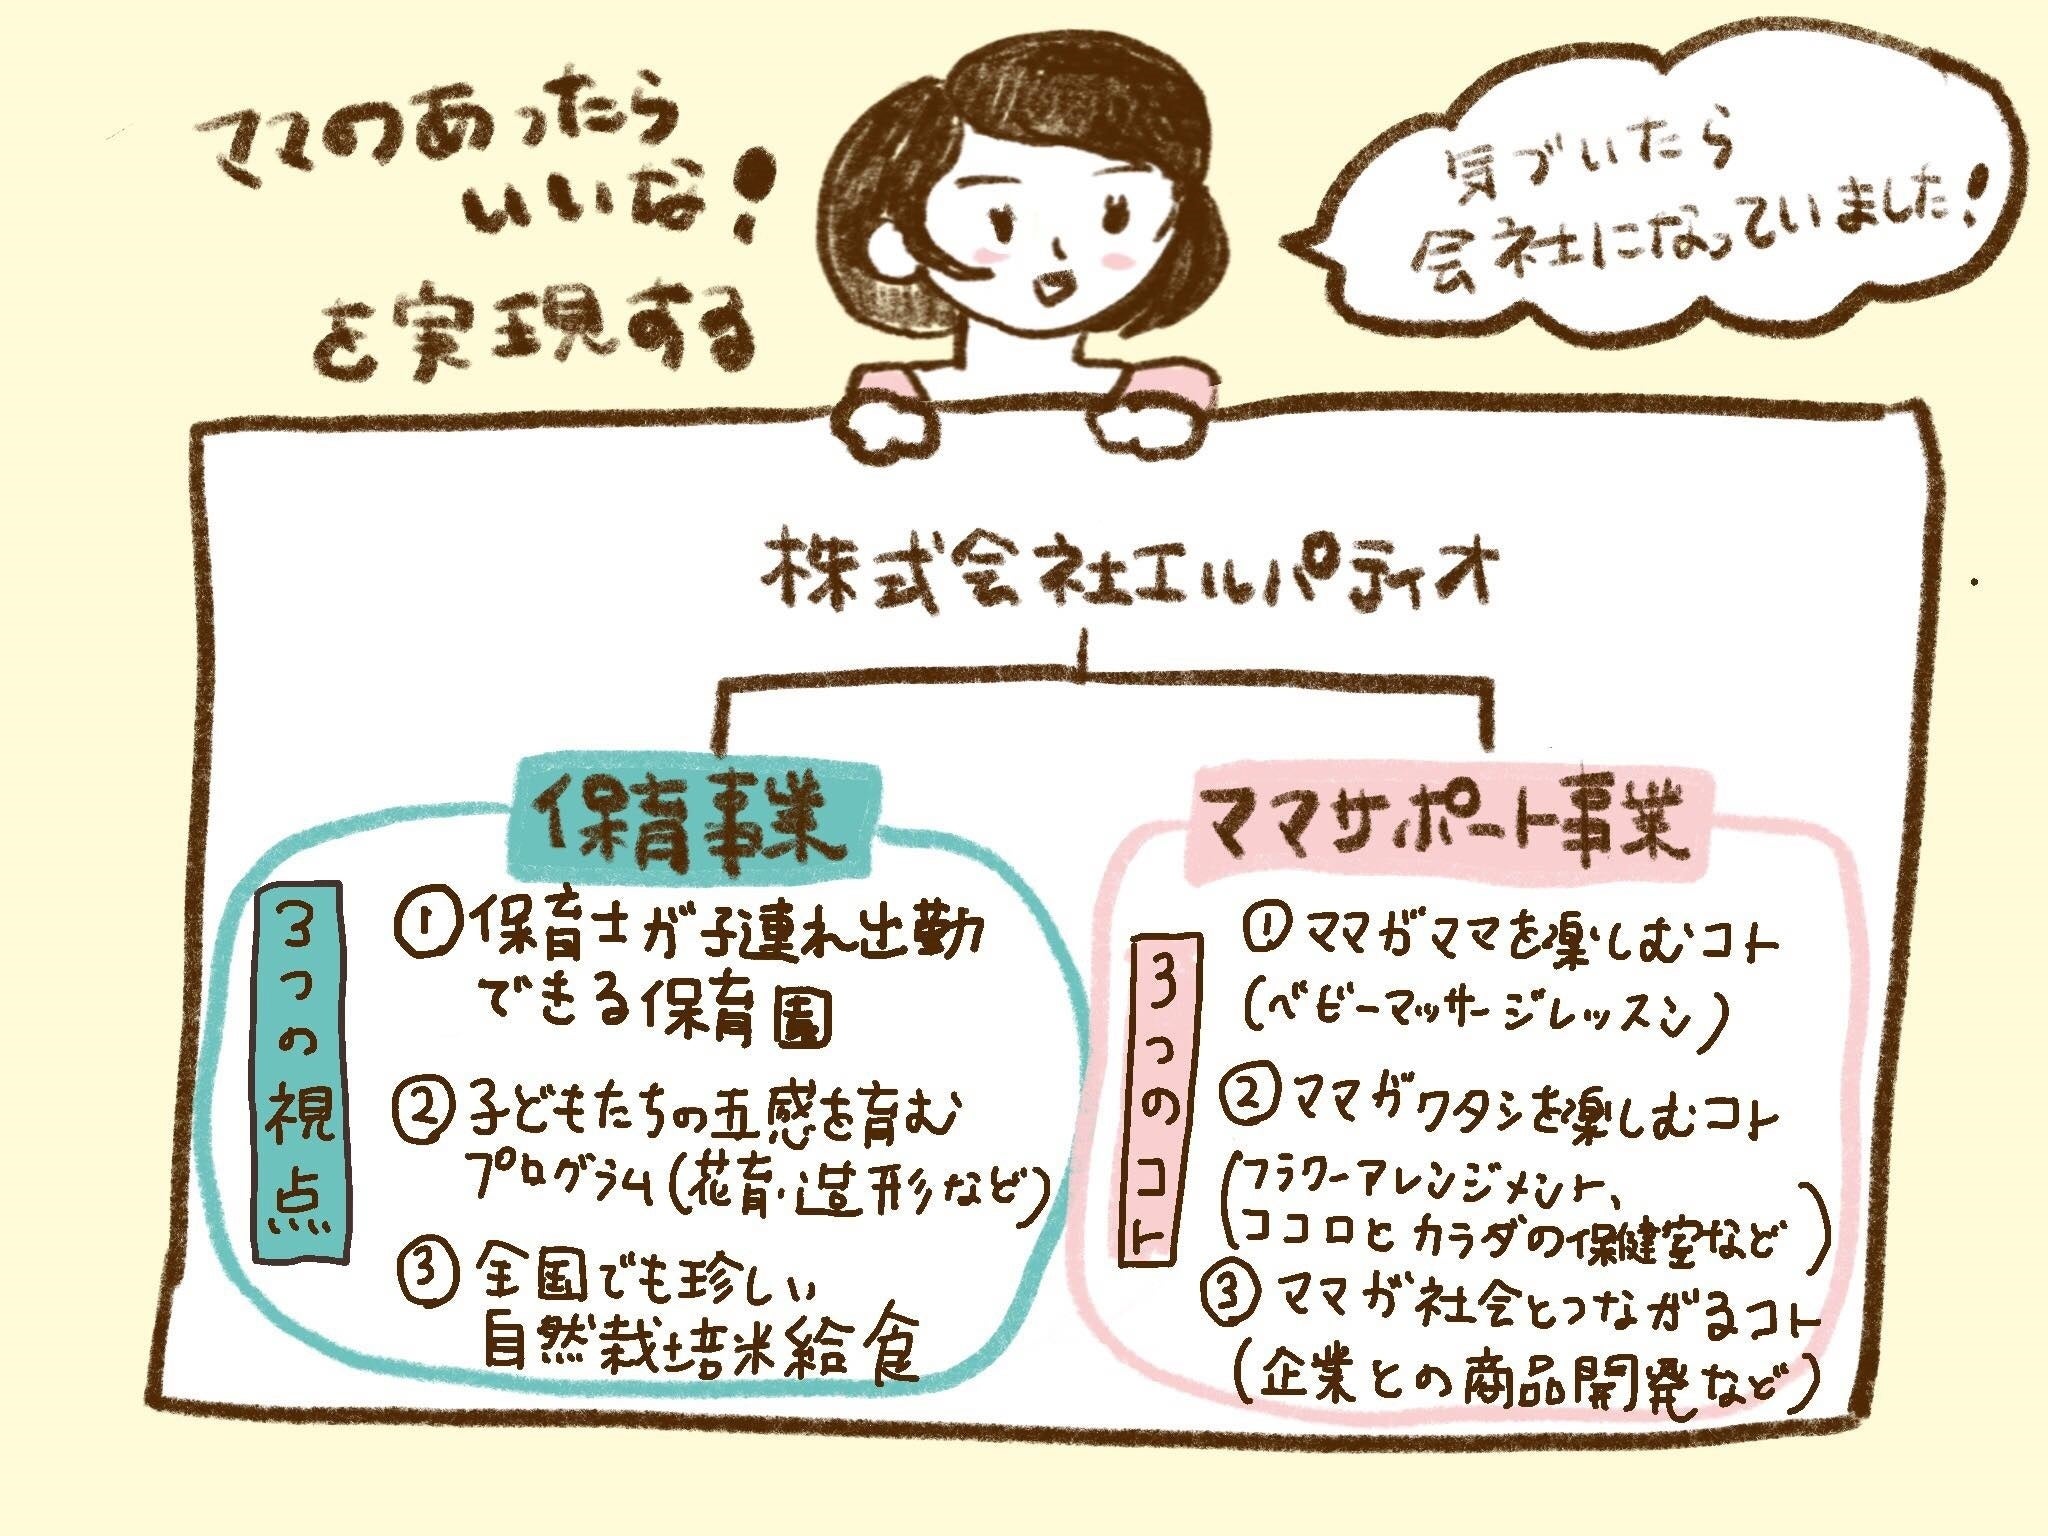 ママのあったら
いいな!
を実現する
気づいたら
会社になっていました!
株式会社エルパティオ
保育事業
3つの視点
①保育士が子連れ出勤
できる保育園
②子どもたちの五感を育む
プログラム(花育・造形など)
③全国でも珍しい
自然栽培米給食
ママサポート事業
3つのコト
①ママがママを楽しむコト
(ベビーマッサージレッスン)
②ママがワタシを楽しむコト
(フラワーアレンジメント、
ココロとカラダの保健室など)
③ママが社会とつながるコト
(企業との商品開発など)